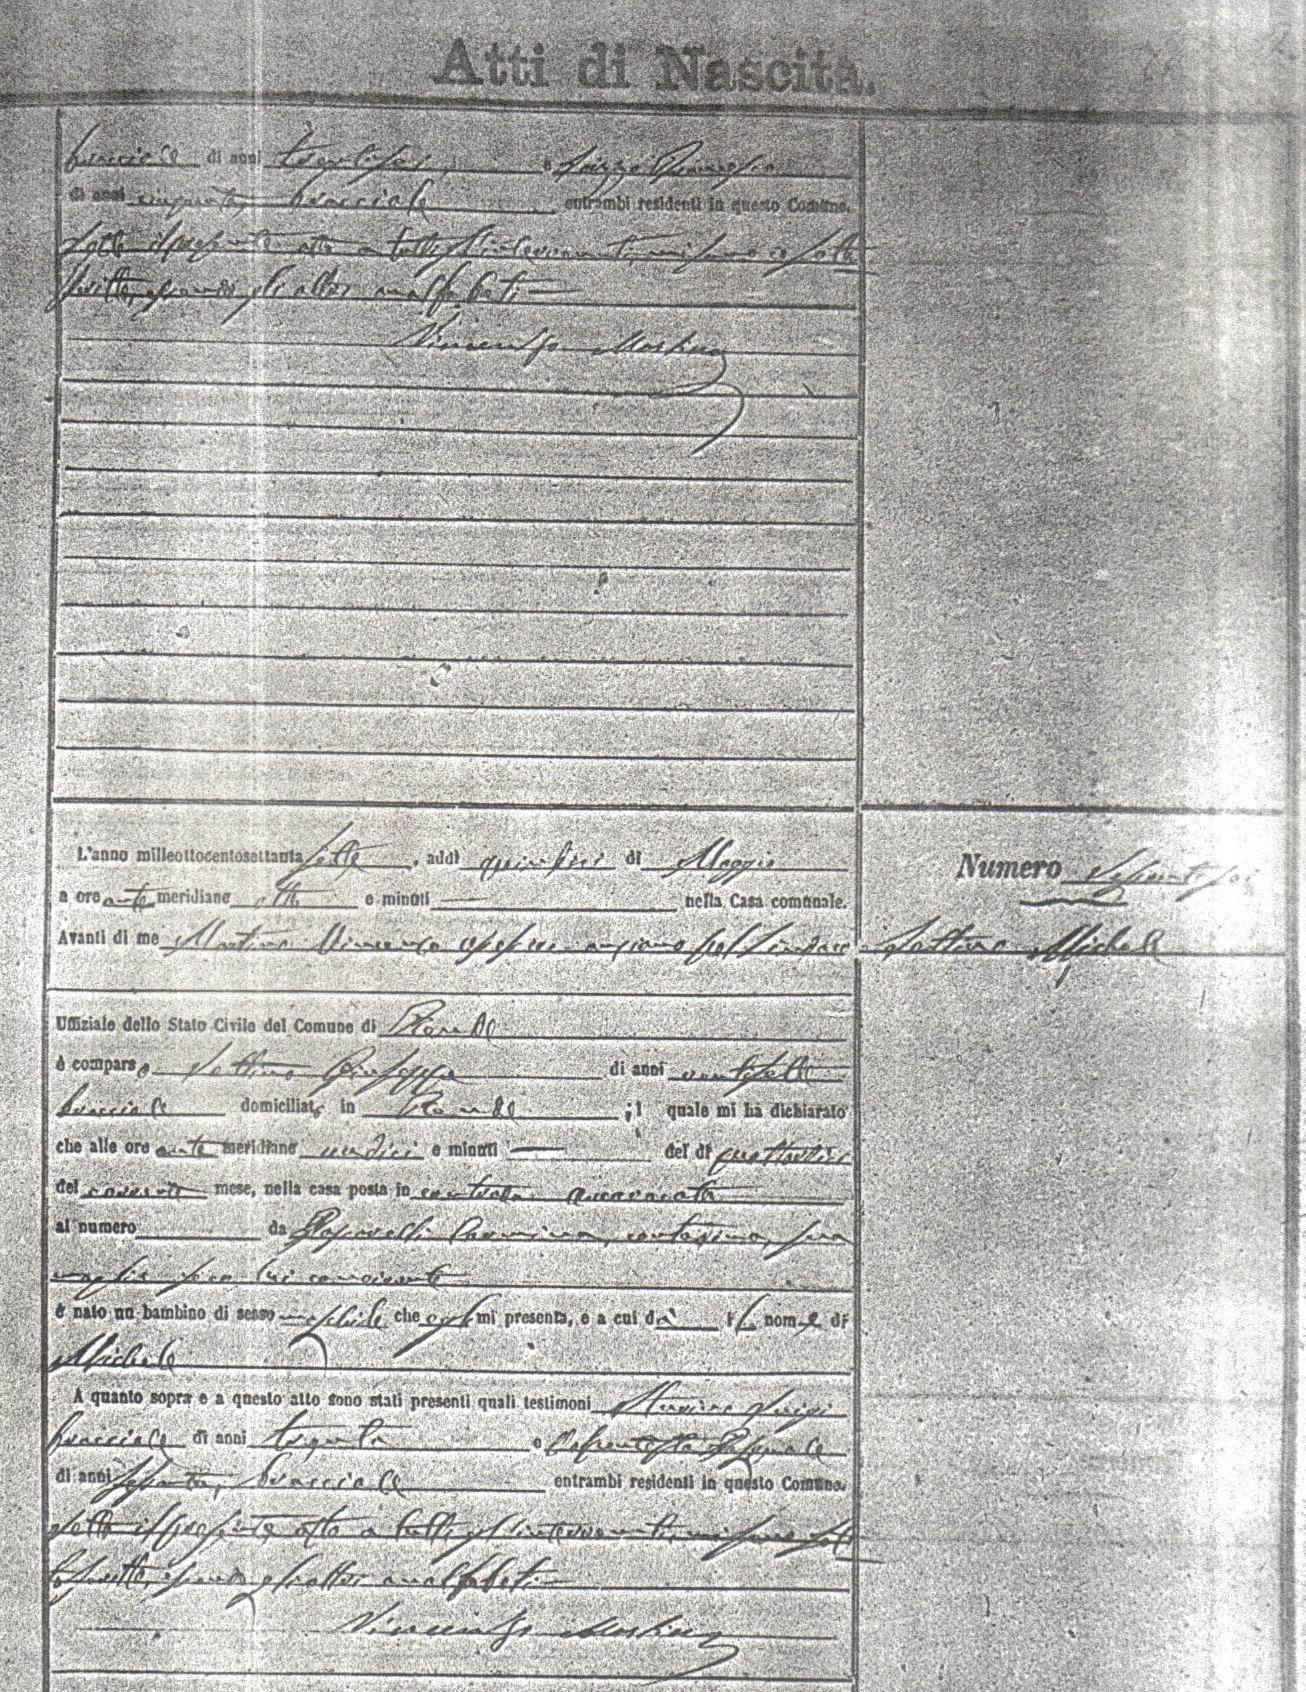 Atti di Nascita.
bracciale di anni trentasei, e Gaizzo Francesco
di anni cinquanta, bracciale entrambi residenti in questo Comune.
Letto il presente atto a tutti gl'intervenuti, mi sono io sotto
scritto, essendo gli altri analfabeti
Vincenzo Martino
L'anno milleottocentosettantasette, addì quindici di Maggio
a ore antemeridiane otto e minuti — nella Casa comunale. Numero
Avanti di me Martino Vincenzo assessore anziano pel Sindaco Settino Michele
Uffiziale dello Stato Civile del Comune di Rende
è comparso Settino Giuseppe di anni ventisette
bracciale domiciliato in Rende ; il quale mi ha dichiarato
che alle ore antemeridiane undici e minuti — del dì quattordici
del corrente mese, nella casa posta in contrada
al numero da Carmina, contadina, sua
moglie seco lui convivente
è nato un bambino di sesso maschile che egli mi presenta, e a cui dà il nome di
Michele
A quanto sopra e a questo atto sono stati presenti quali testimoni Luigi
bracciale di anni trenta e Pasquale
di anni sessanta, bracciale entrambi residenti in questo Comune.
Letto il presente atto a tutti gl'intervenuti, mi sono sot
toscritto, essendo gli altri analfabeti
Vincenzo Martino